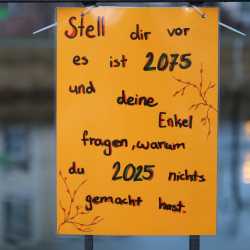 Stell dir vor
es ist 2075
und deine
Enkel
fragen, warum
du 2025 nichts
gemacht hast.